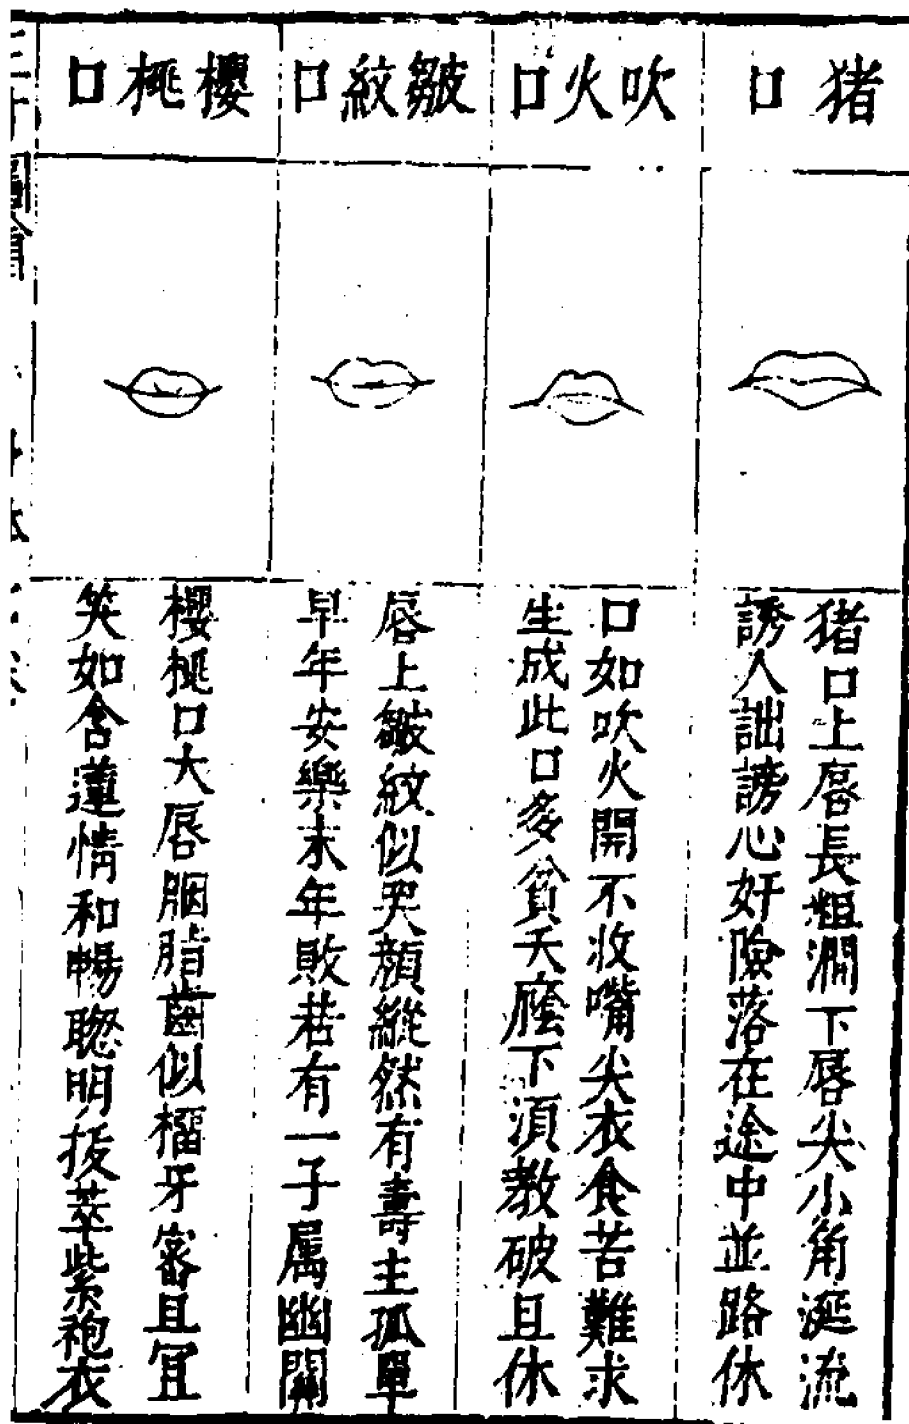 猪口
猪口上唇長粗濶下唇尖小角涎流
誘人詘謗心奸險落在途中並路休
吹火口
口如吹火開不收嘴尖衣食苦難求
生成此口多貧夭廕下湏教破且休
皺紋口
唇上皺紋似哭顔縱然有壽主孤單
早年安樂末年敗若有一子属幽關
櫻桃口
櫻桃口大唇胭脂齒似榴牙密且宜
笑如含蓮情和暢聦明拔萃紫袍衣